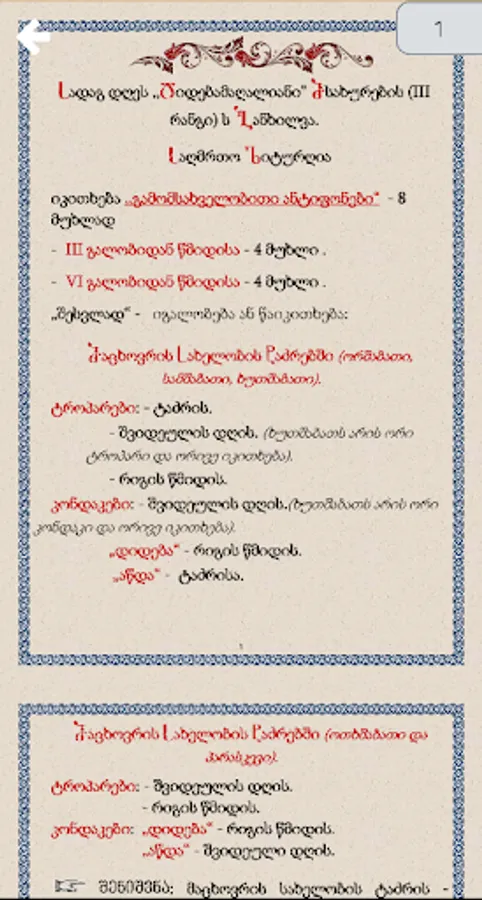 1
სადაგ დღეს „დიდებამაღალიანი“ მსახურების (III
რანგი) ს განხილვა.
საღმრთო ლიტურღია
იკითხება „გამომსახველობითი ანტიფონები“ - 8
მუხლად
- III გალობიდან წმიდისა - 4 მუხლი .
- VI გალობიდან წმიდისა - 4 მუხლი .
„შესვლად“ - იგალობება ან წაიკითხება:
მაცხოვრის სახელობის ტაძრებში (ორშაბათი,
სამშაბათი, ხუთშაბათი).
ტროპარები: - ტაძრის.
- შვიდეულის დღის. (ხუთშაბათს არის ორი
ტროპარი და ორივე იკითხება).
- რიგის წმიდის.
კონდაკები: - შვიდეულის დღის.(ხუთშაბათს არის ორი
კონდაკი და ორივე იკითხება).
„დიდება“ - რიგის წმიდის.
„აწდა“ - ტაძრისა.
1
მაცხოვრის სახელობის ტაძრებში (ოთხშაბათი და
პარასკევი).
ტროპარები: - შვიდეულის დღის.
- რიგის წმიდის.
კონდაკები: „დიდება“ - რიგის წმიდის.
„აწდა“ - შვიდეული დღის.
შენიშვნა: მაცხოვრის სახელობის ტაძრის -